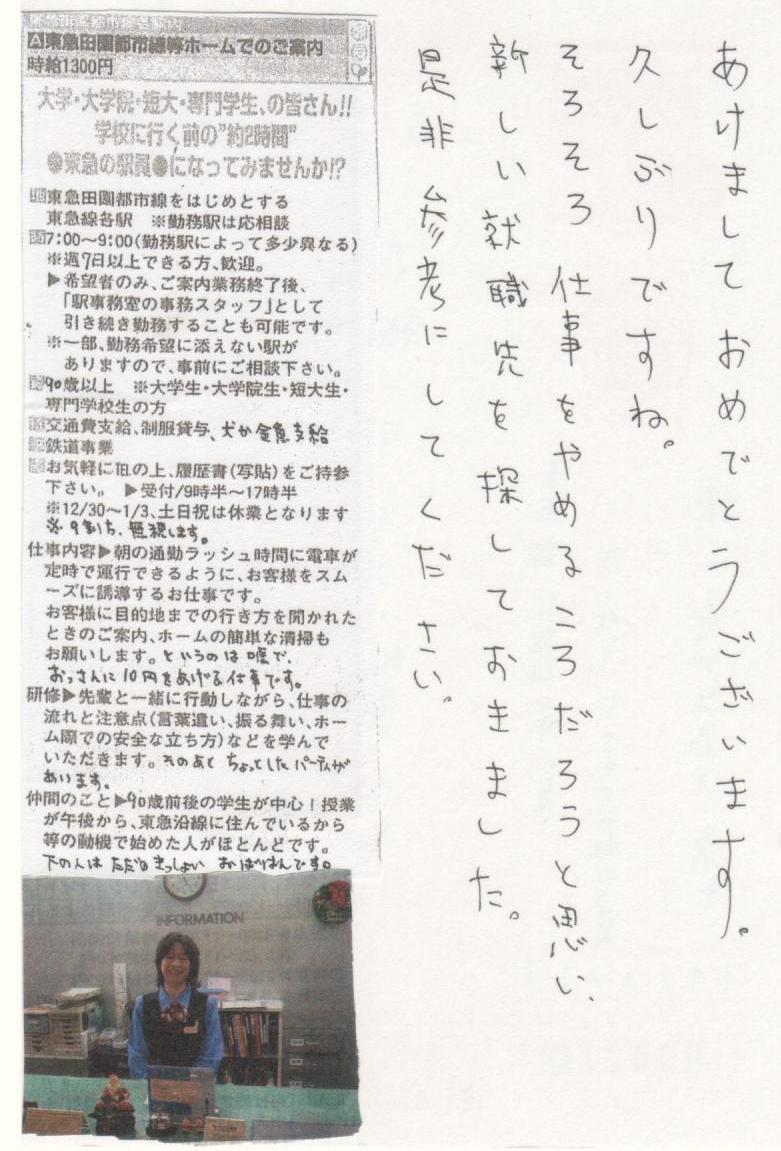 あけましておめでとうございます。
久しぶりですね。
そろそろ仕事をやめるころだろうと思い、
新しい就職先を探しておきました。
是非参考にしてください。
A東急田園都市線等ホームでのご案内
時給1300円
大学・大学院・短大・専門学生、の皆さん!!
学校に行く前の"約2時間"
●東急の駅員●になってみませんか!?
東急田園都市線をはじめとする
東急線各駅 ※勤務駅は応相談
7:00〜9:00(勤務駅によって多少異なる)
※週7日以上できる方、歓迎。
▶希望者のみ、ご案内業務終了後、
「駅事務室の事務スタッフ」として
引き続き勤務することも可能です。
※一部、勤務希望に添えない駅が
ありますので、事前にご相談下さい。
90歳以上 ※大学生・大学院生・短大生・
専門学校生の方
交通費支給、制服貸与、犬か金魚支給
鉄道事業
お気軽に℡の上、履歴書(写貼)をご持参
下さい。 ▶受付/9時半〜17時半
※12/30〜1/3、土日祝は休業となります
※9割方、無視します。
仕事内容▶朝の通勤ラッシュ時間に電車が
定時で運行できるように、お客様をスム
ーズに誘導するお仕事です。
お客様に目的地までの行き方を聞かれた
ときのご案内、ホームの簡単な清掃も
お願いします。というのは嘘で、
おっさんに10円をあげる仕事です。
研修▶先輩と一緒に行動しながら、仕事の
流れと注意点(言葉遣い、振る舞い、ホー
ム際での安全な立ち方)などを学んで
いただきます。そのあとちょっとしたパーティが
あります。
仲間のこと▶90歳前後の学生が中心!授業
が午後から、東急沿線に住んでいるから
等の動機で始めた人がほとんどです。
下の人は おばはんです。
INFORMATION